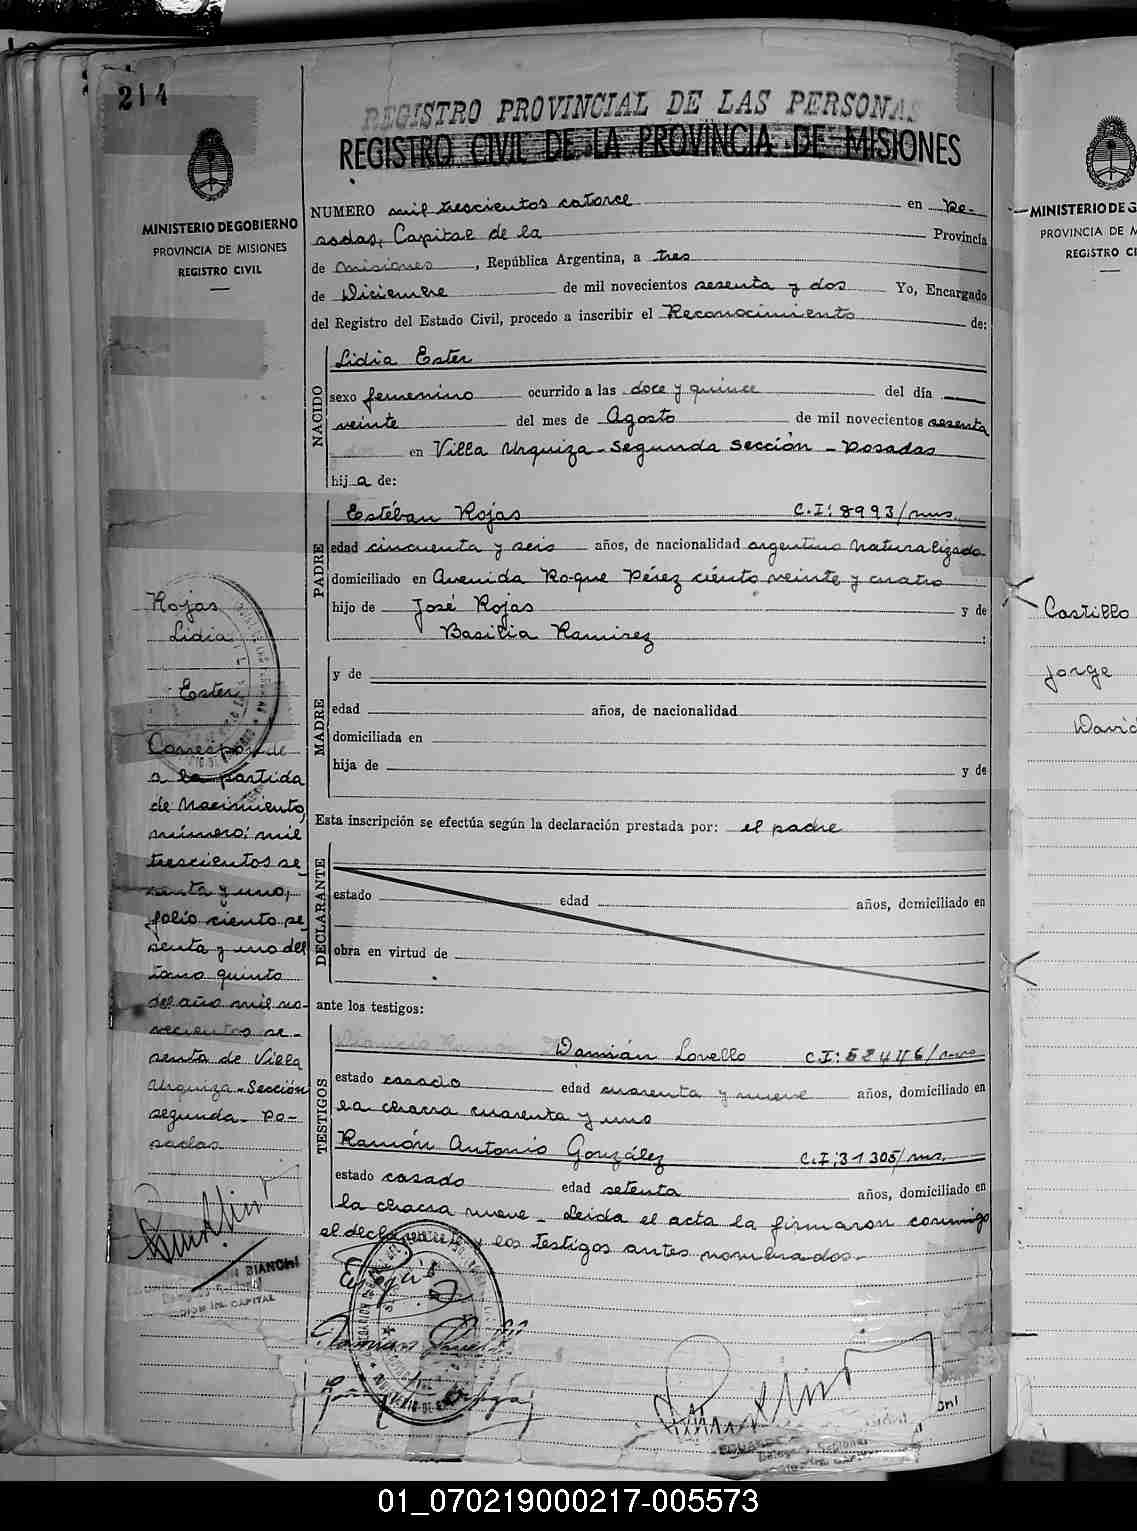 214
REGISTRO PROVINCIAL DE LAS PERSONAS
REGISTRO CIVIL DE LA PROVINCIA DE MISIONES
MINISTERIO DE GOBIERNO
PROVINCIA DE MISIONES
REGISTRO CIVIL
NUMERO mil trescientos catorce en Po-
sadas, Capital de la Provincia
de Misiones, República Argentina, a tres
de Diciembre de mil novecientos sesenta y dos Yo, Encargado
del Registro del Estado Civil, procedo a inscribir el Reconocimiento de:
NACIDO
Lidia Ester
sexo femenino ocurrido a las doce y quince del día
veinte del mes de Agosto de mil novecientos sesenta
en Villa Urquiza - Segunda Sección - Posadas
hija de:
PADRE
Estéban Rojas C.I: 8993/mns.
edad cincuenta y seis años, de nacionalidad argentino Naturalizado
domiciliado en Avenida Roque Pérez ciento veinte y cuatro
hijo de José Rojas y de
Basilia Ramirez :
MADRE
y de
edad años, de nacionalidad
domiciliada en
hija de y de
Esta inscripción se efectúa según la declaración prestada por: el padre
DECLARANTE
estado edad años, domiciliado en
obra en virtud de
ante los testigos:
TESTIGOS
Damián Lovello C.I: 52446/mns
estado casado edad cuarenta y nueve años, domiciliado en
la chacra cuarenta y uno
Ramón Antonio González C.I: 31305/mns.
estado casado edad setenta años, domiciliado en
la chacra nueve - Leida el acta la firmaron conmigo
el declarante y los testigos antes nombrados -
Rojas
Lidia
Ester
Corresponde
a la partida
de Nacimiento,
número: mil
trescientos se-
senta y uno,
folio ciento se-
senta y uno del
tomo quinto
del año mil no-
vecientos se-
senta de Villa
Urquiza - Sección
segunda - Po-
sadas
BIANCHI
CAPITAL
MINISTERIO DE G
PROVINCIA DE M
REGISTRO CI
Castillo
Jorge
David
01_070219000217-005573